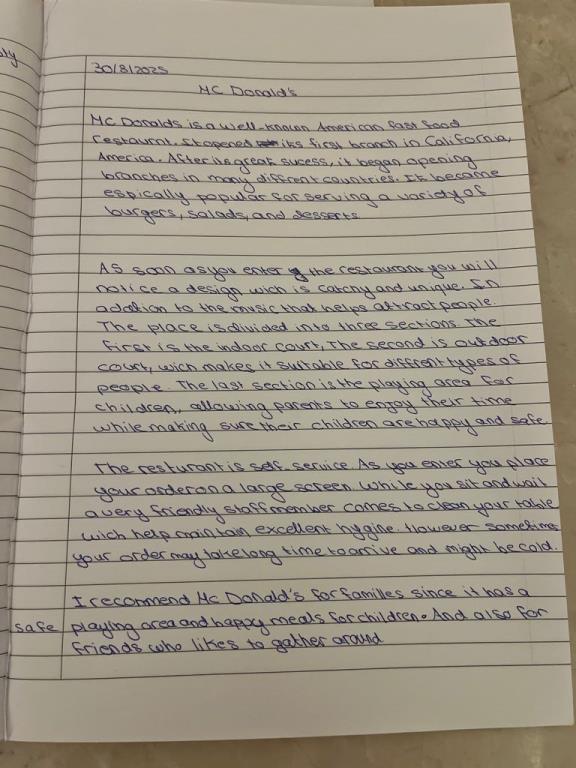 30/8/2025
MC Donald's
MC Donalds is a well-known American fast food
restaurnt. It opened its first branch in California,
America. After its great sucess, it began opening
branches in many diffrent countries. It became
espically popular for serving a variety of
burgers, salads, and desserts.
As soon as you enter the restaurant you will
notice a design wich is catchy and unique. In
addtion to the music that helps attract people.
The place is divided into three sections. The
first is the indoor court, The second is outdoor
court, wich makes it suitable for diffrent types of
people. The last section is the playing area for
children, allowing parents to enjoy their time
while making sure their children are happy and safe
The resturant is self-service. As you enter you place
your order on a large screen. While you sit and wait
a very friendly staff member comes to clean your table
wich help maintain excellent hygine. However sometimes
your order may take long time to arrive and might be cold.
I recommend Mc Donald's for familles since it has a
safe playing area and happy meals for children. And also for
friends who likes to gather around